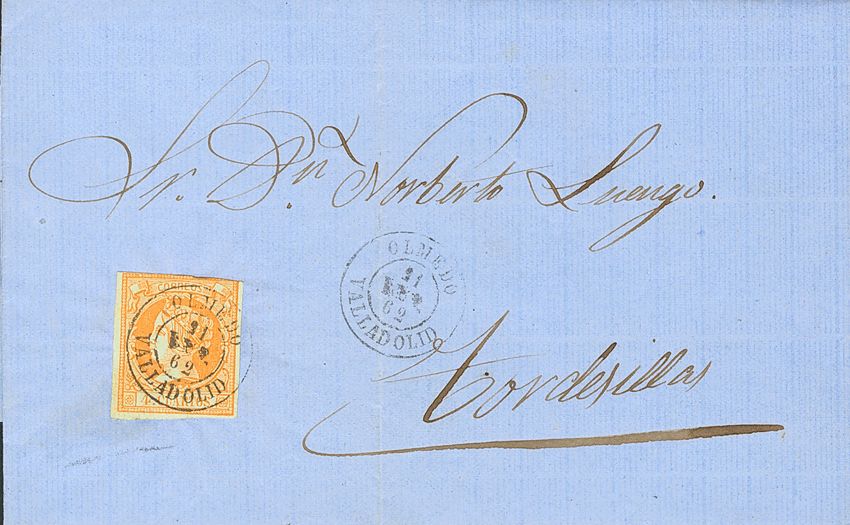 Sr. Dn. Norberto Luengo.
OLMEDO
21
ENE.
62
VALLADOLID
Tordesillas
CORREOS
OLMEDO
21
ENE.
62
VALLADOLID